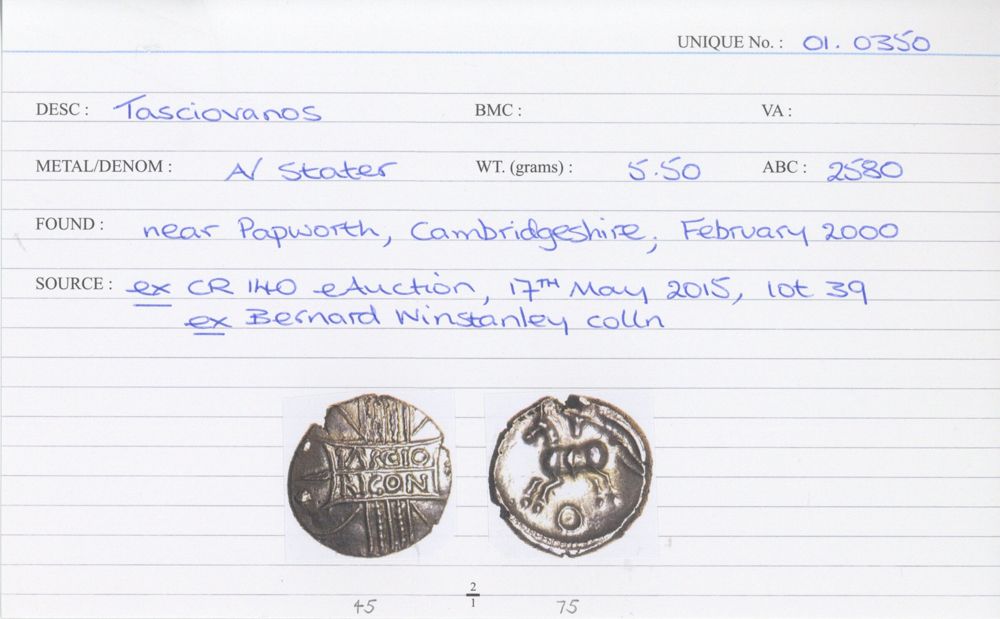 UNIQUE No. : 01. 0350
DESC : Tasciovanos BMC : VA :
METAL/DENOM : A/ Stater WT. (grams) : 5.50 ABC : 2580
FOUND : near Papworth, Cambridgeshire, February 2000
SOURCE : ex CR 140 eAuction, 17TH May 2015, lot 39
ex Bernard Winstanley colln
RICON
45 2/1 75